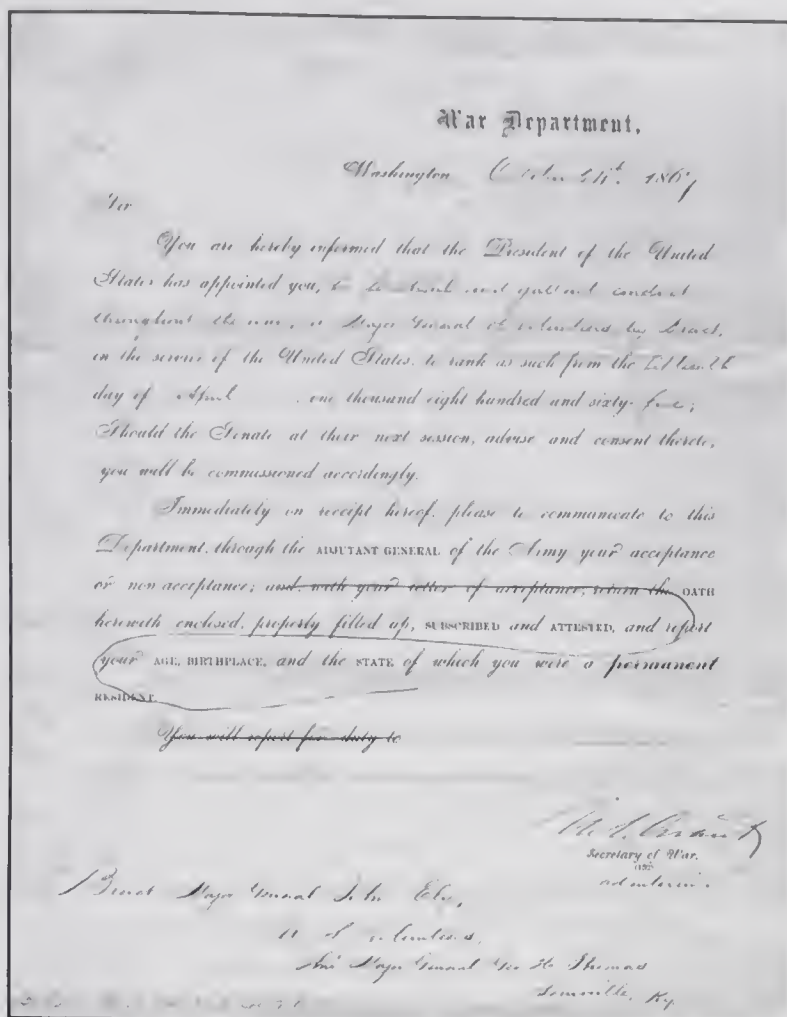 War Department,
Washington October 1867
Sir
You are hereby informed that the President of the United
States has appointed you, for and gallant conduct
throughout the war, a Major General of volunteers by Brevet,
in the service of the United States, to rank as such from the fifteenth
day of April , one thousand eight hundred and sixty-five;
Should the Senate at their next session, advise and consent thereto,
you will be commissioned accordingly.
Immediately on receipt hereof, please to communicate to this
Department, through the ADJUTANT GENERAL of the Army your acceptance
or non acceptance; and, with your letter of acceptance, return the OATH
herewith enclosed, properly filled up, SUBSCRIBED and ATTESTED, and report
your AGE, BIRTHPLACE, and the STATE of which you were a permanent
RESIDENT.
You will report for duty to
Secretary of War.
ad interim.
Brevet Major General John Ely,
U. S. Volunteers,
Major General Geo H. Thomas
Louisville, Ky